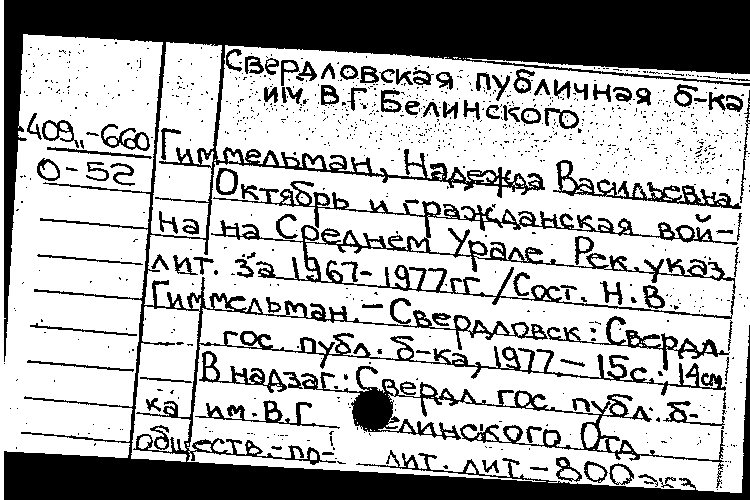 Свердловская публичная б-ка
им. В.Г. Белинского.
409"-660
О-52
Гиммельман, Надежда Васильевна.
Октябрь и гражданская вой-
на на Среднем Урале. Рек. указ.
лит. за 1967-1977 гг. /Сост. Н.В.
Гиммельман. – Свердловск: Свердл.
гос. публ. б-ка, 1977 – 15 с.; 14 см
В надзаг.: Свердл. гос. публ. б-
ка им. В.Г. Белинского. Отд.
обществ.-по- лит. лит. – 800 экз.